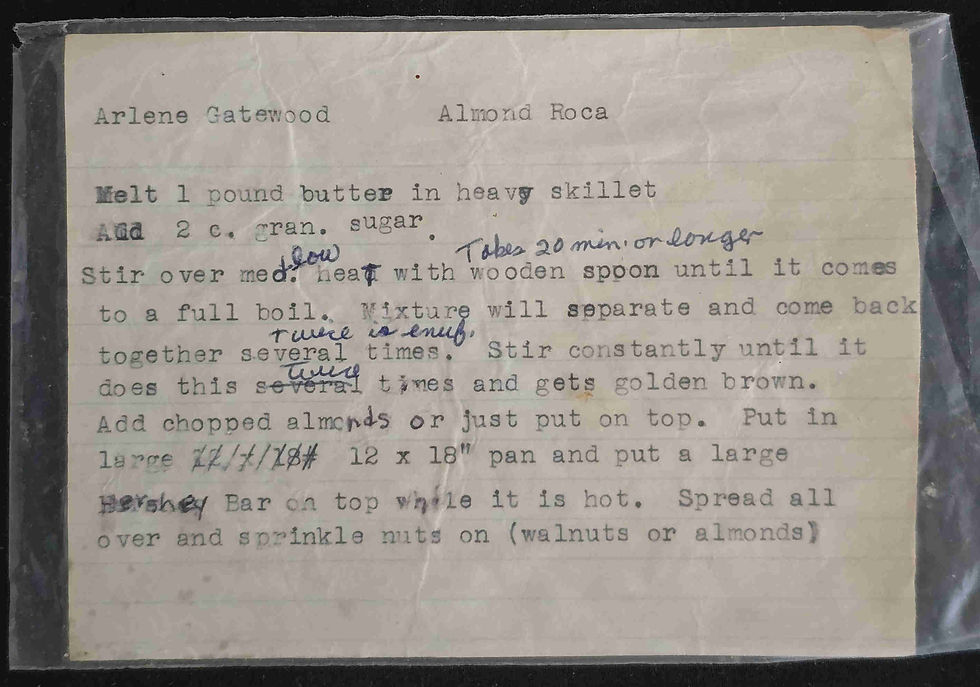 Arlene Gatewood Almond Roca
Melt 1 pound butter in heavy skillet
Add 2 c. gran. sugar.
low Takes 20 min. or longer
Stir over med. heat with wooden spoon until it comes
to a full boil. Mixture will separate and come back
twice is enuf.
together several times. Stir constantly until it
twice
does this several times and gets golden brown.
Add chopped almonds or just put on top. Put in
large 12 x 18" pan and put a large
Hershey Bar on top while it is hot. Spread all
over and sprinkle nuts on (walnuts or almonds)